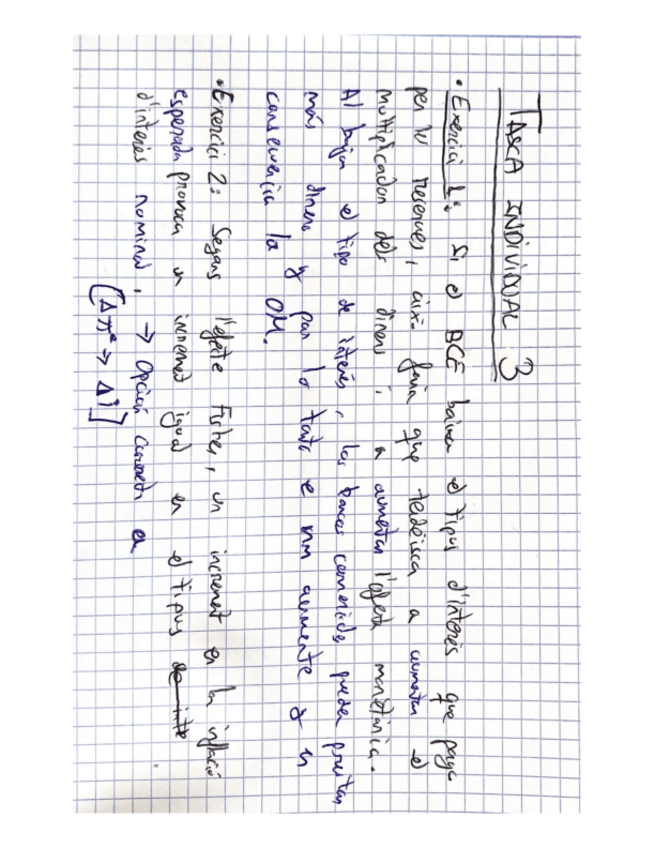 TASCA INDIVIDUAL 3
• Exercici 1: Si el BCE baixa el tipus d'interès que paga
per les reserves, això faria que tendeixca a aumentar el
multiplicador dels diners i a aumentar l'oferta monetària.
Al bajar el tipo de interés, los bancos comerciales pueden prestar
más dinero y por lo tanto el mm aumente y en
consecuencia la OM.
• Exercici 2: Segons l'efecte Fisher, un increment en la inflació
esperada provoca un increment igual en el tipus de inte
d'interès nominal. → Opción correcta a
[Δπᵉ → Δi]